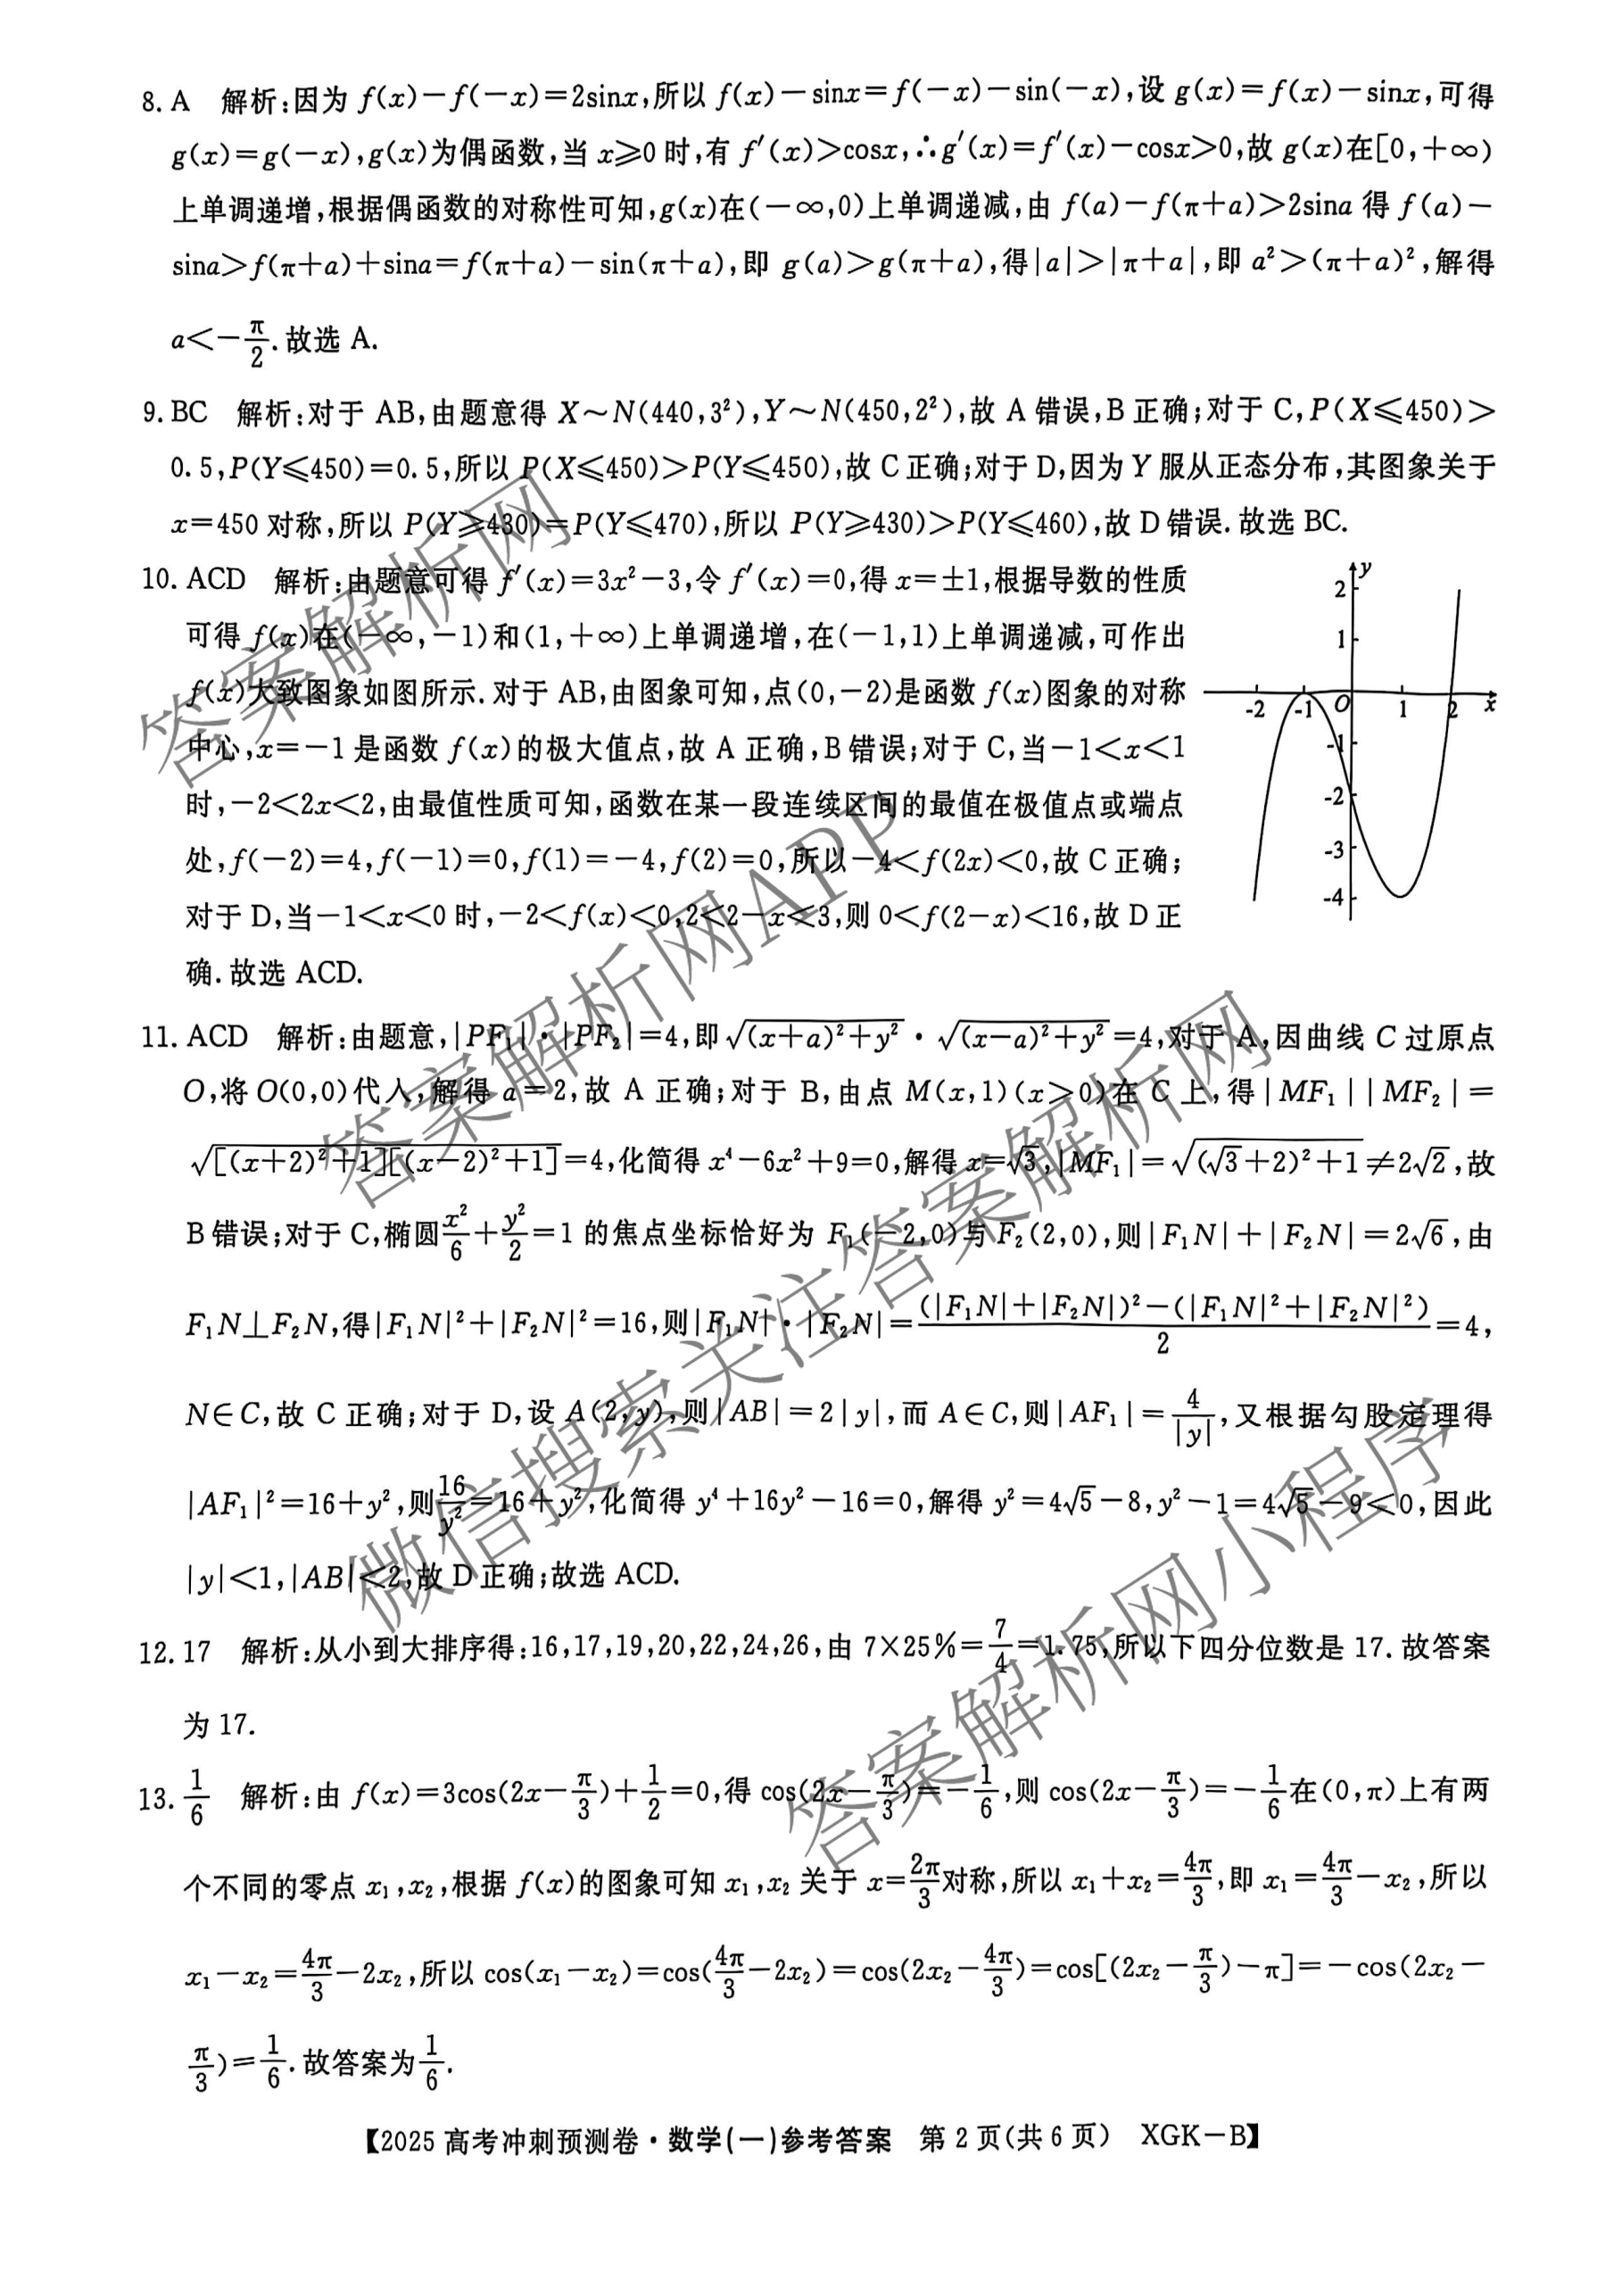 8. A 解析:因为 f(x)－f(－x)＝2sinx,所以 f(x)－sinx＝f(－x)－sin(－x),设 g(x)＝f(x)－sinx,可得
g(x)＝g(－x),g(x)为偶函数,当 x⩾0 时,有 f′(x)＞cosx,∴g′(x)＝f′(x)－cosx＞0,故 g(x)在[0,＋∞)
上单调递增,根据偶函数的对称性可知,g(x)在(－∞,0)上单调递减,由 f(a)－f(π＋a)＞2sina 得 f(a)－
sina＞f(π＋a)＋sina＝f(π＋a)－sin(π＋a),即 g(a)＞g(π＋a),得|a|＞|π＋a|,即 a²＞(π＋a)²,解得
a＜－π/2.故选 A.
9. BC 解析:对于 AB,由题意得 X～N(440,3²),Y～N(450,2²),故 A 错误,B 正确;对于 C,P(X⩽450)＞
0.5,P(Y⩽450)＝0.5,所以 P(X⩽450)＞P(Y⩽450),故 C 正确;对于 D,因为 Y 服从正态分布,其图象关于
x＝450 对称,所以 P(Y⩾430)＝P(Y⩽470),所以 P(Y⩾430)＞P(Y⩽460),故 D 错误.故选 BC.
10. ACD 解析:由题意可得 f′(x)＝3x²－3,令 f′(x)＝0,得 x＝±1,根据导数的性质
可得 f(x)在(－∞,－1)和(1,＋∞)上单调递增,在(－1,1)上单调递减,可作出
f(x)大致图象如图所示.对于 AB,由图象可知,点(0,－2)是函数 f(x)图象的对称
中心,x＝－1 是函数 f(x)的极大值点,故 A 正确,B 错误;对于 C,当－1＜x＜1
时,－2＜2x＜2,由最值性质可知,函数在某一段连续区间的最值在极值点或端点
处,f(－2)＝4,f(－1)＝0,f(1)＝－4,f(2)＝0,所以－4＜f(2x)＜0,故 C 正确;
对于 D,当－1＜x＜0 时,－2＜f(x)＜0,2＜2－x＜3,则 0＜f(2－x)＜16,故 D 正
确.故选 ACD.
y
2
1
-2 -1 O 1 2 x
-1
-2
-3
-4
11. ACD 解析:由题意,|PF₁|·|PF₂|＝4,即√((x＋a)²＋y²)·√((x－a)²＋y²)＝4,对于 A,因曲线 C 过原点
O,将 O(0,0)代入,解得 a＝2,故 A 正确;对于 B,由点 M(x,1)(x＞0)在 C 上,得|MF₁||MF₂|＝
√([(x＋2)²＋1][(x－2)²＋1])＝4,化简得 x⁴－6x²＋9＝0,解得 x＝√3,|MF₁|＝√((√3＋2)²＋1)≠2√2,故
B 错误;对于 C,椭圆x²/6＋y²/2＝1 的焦点坐标恰好为 F₁(－2,0)与 F₂(2,0),则|F₁N|＋|F₂N|＝2√6,由
F₁N⊥F₂N,得|F₁N|²＋|F₂N|²＝16,则|F₁N|·|F₂N|＝((|F₁N|＋|F₂N|)²－(|F₁N|²＋|F₂N|²))/2＝4,
N∈C,故 C 正确;对于 D,设 A(2,y),则|AB|＝2|y|,而 A∈C,则|AF₁|＝4/|y|,又根据勾股定理得
|AF₁|²＝16＋y²,则16/y²＝16＋y²,化简得 y⁴＋16y²－16＝0,解得 y²＝4√5－8,y²－1＝4√5－9＜0,因此
|y|＜1,|AB|＜2,故 D 正确;故选 ACD.
12. 17 解析:从小到大排序得:16,17,19,20,22,24,26,由 7×25％＝7/4＝1.75,所以下四分位数是 17.故答案
为 17.
13. 1/6 解析:由 f(x)＝3cos(2x－π/3)＋1/2＝0,得 cos(2x－π/3)＝－1/6,则 cos(2x－π/3)＝－1/6在(0,π)上有两
个不同的零点 x₁,x₂,根据 f(x)的图象可知 x₁,x₂ 关于 x＝2π/3对称,所以 x₁＋x₂＝4π/3,即 x₁＝4π/3－x₂,所以
x₁－x₂＝4π/3－2x₂,所以 cos(x₁－x₂)＝cos(4π/3－2x₂)＝cos(2x₂－4π/3)＝cos[(2x₂－π/3)－π]＝－cos(2x₂－
π/3)＝1/6.故答案为1/6.
【2025 高考冲刺预测卷·数学(一)参考答案 第 2 页(共 6 页) XGK－B】
答案解析网
答案解析网APP
微信搜索关注答案解析网
答案解析网小程序